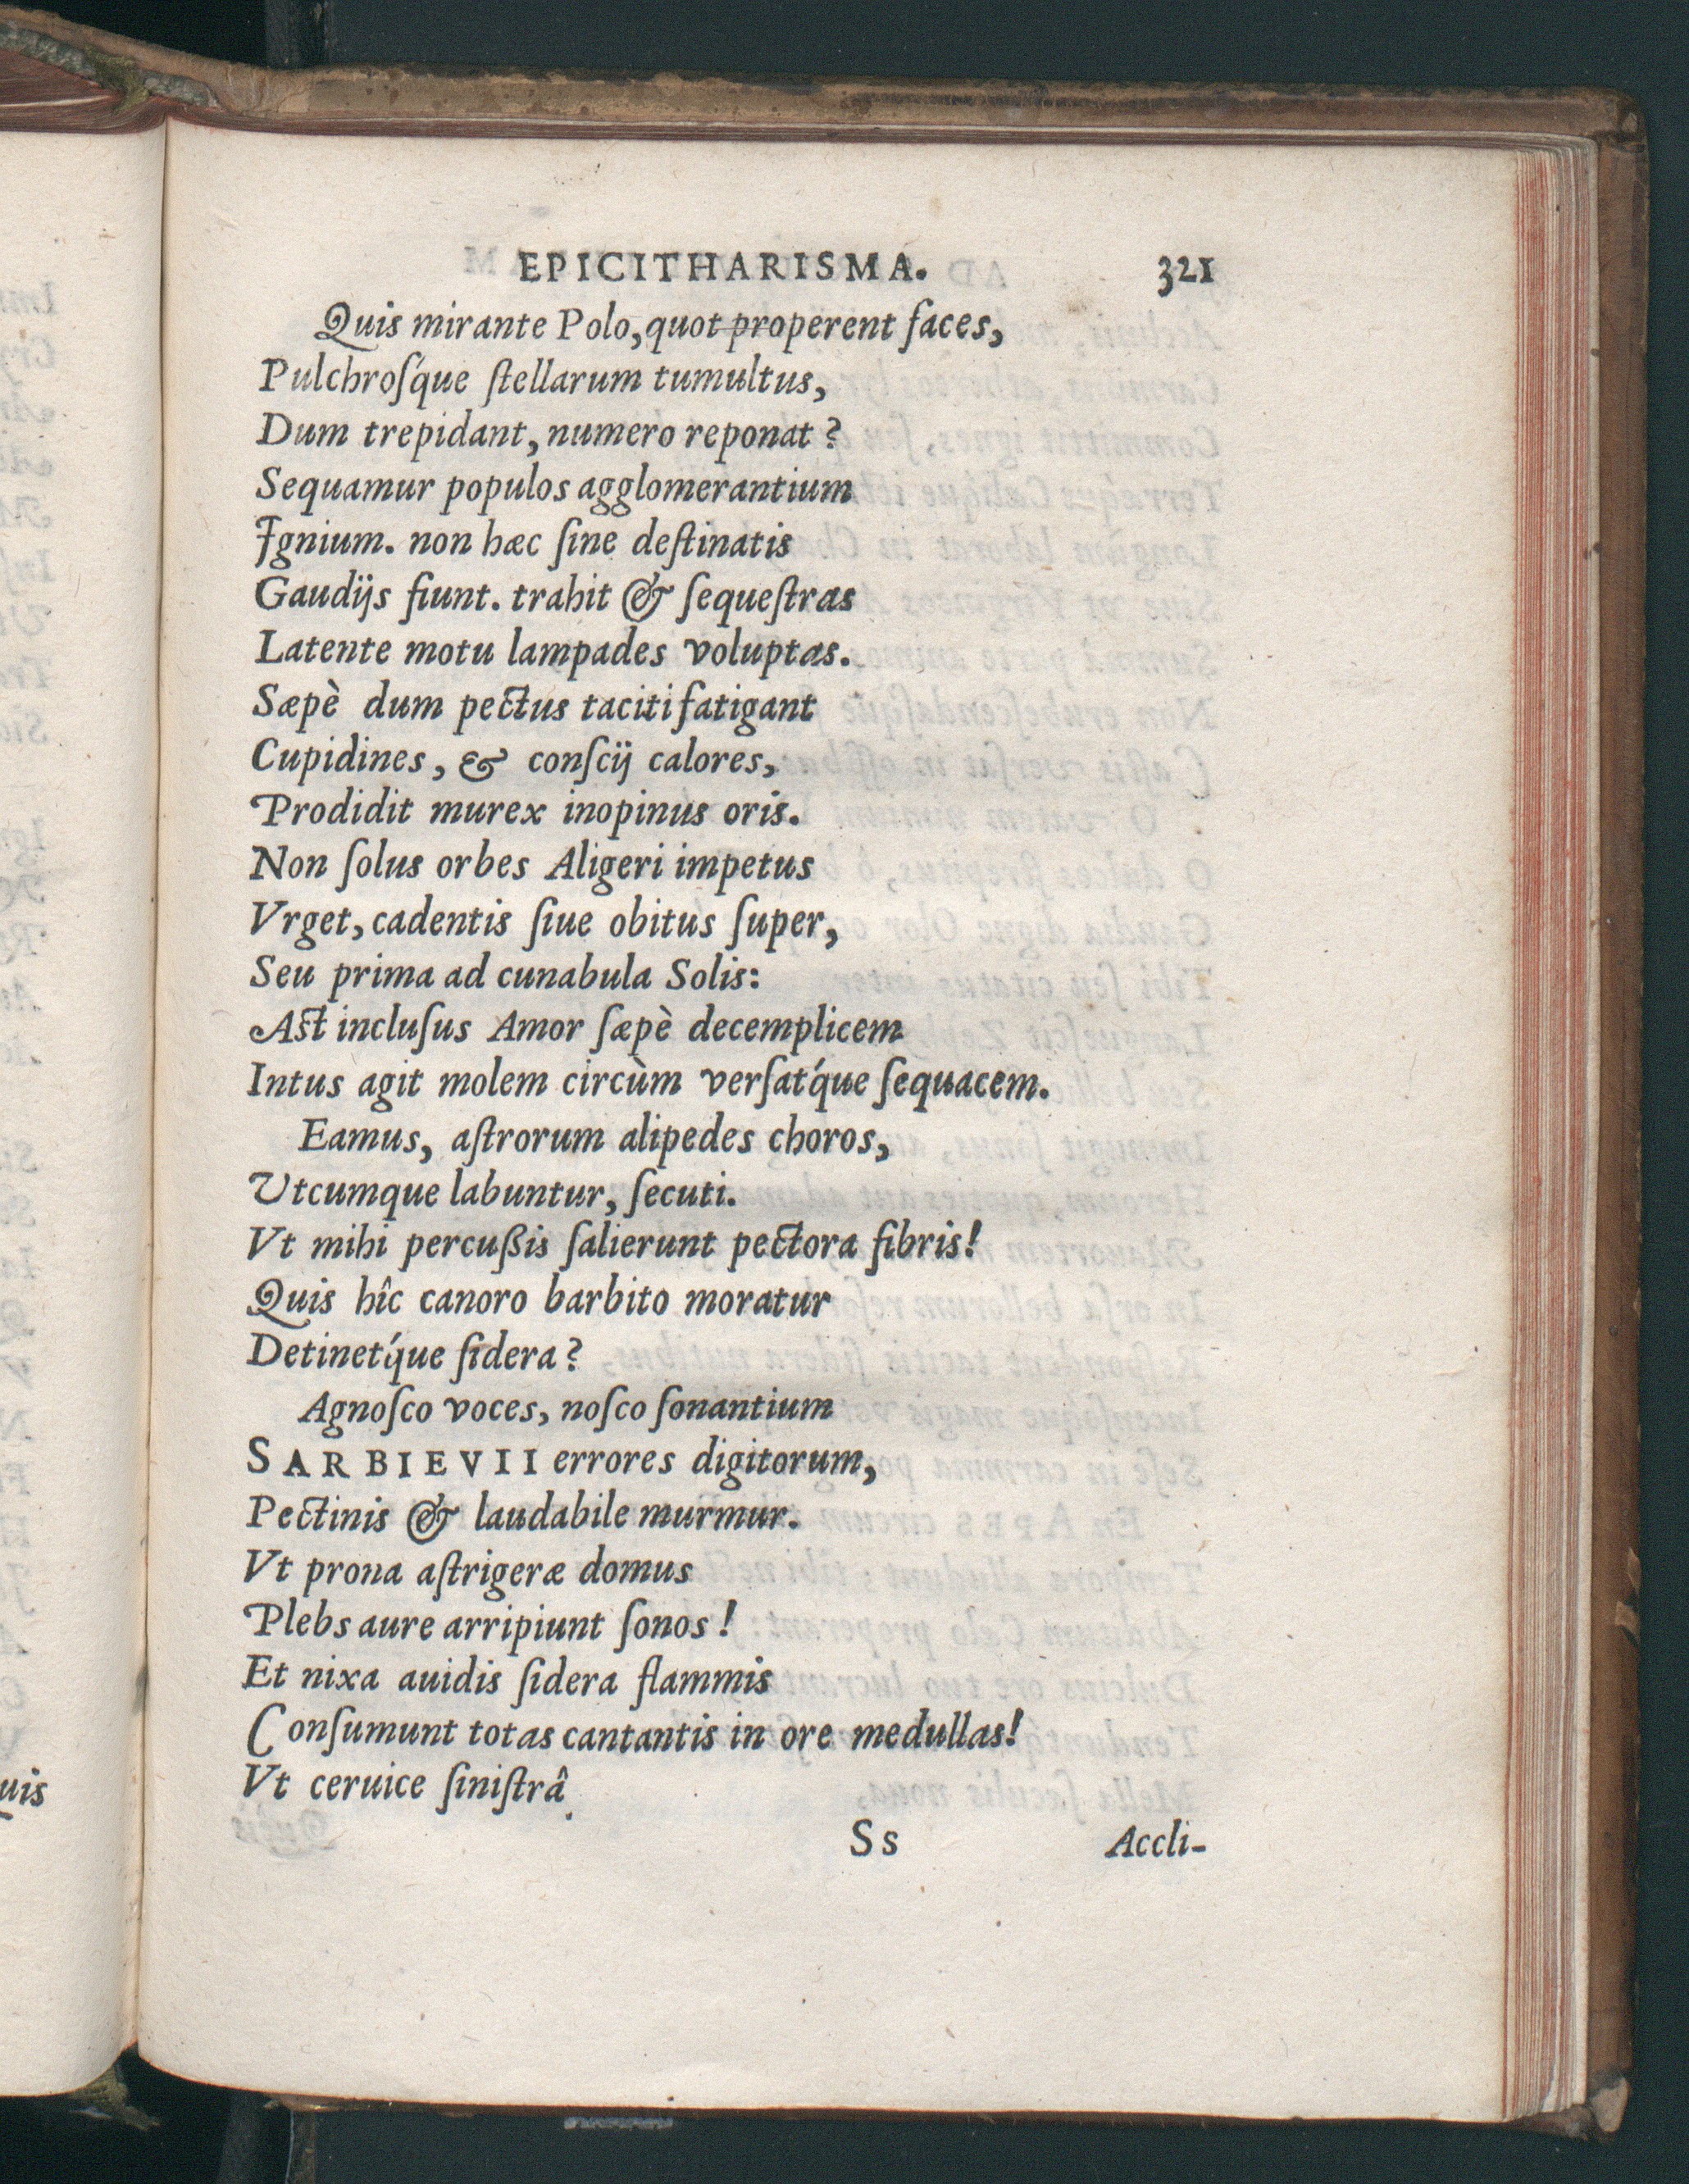 EPICITHARISMA. 321
Quis mirante Polo, quot properent faces,
Pulchroſq́ue ſtellarum tumultus,
Dum trepidant, numero reponat?
Sequamur populos agglomerantium
Ignium. non hæc ſine deſtinatis
Gaudijs fiunt. trahit & ſequeſtras
Latente motu lampades voluptas.
Sæpè dum pectus taciti fatigant
Cupidines, & conſcij calores,
Prodidit murex inopinus oris.
Non ſolus orbes Aligeri impetus
Vrget, cadentis ſiue obitus ſuper,
Seu prima ad cunabula Solis:
Aſt incluſus Amor ſæpè decemplicem
Intus agit molem circùm verſatq́ue ſequacem.
Eamus, aſtrorum alipedes choros,
Vtcumque labuntur, ſecuti.
Vt mihi percußis ſalierunt pectora fibris!
Quis hîc canoro barbito moratur
Detinetq́ue ſidera?
Agnoſco voces, noſco ſonantium
SARBIEVII errores digitorum,
Pectinis & laudabile murmur.
Vt prona aſtrigeræ domus
Plebs aure arripiunt ſonos!
Et nixa auidis ſidera flammis
Conſumunt totas cantantis in ore medullas!
Vt ceruice ſiniſtrâ
Ss Accli-
uis